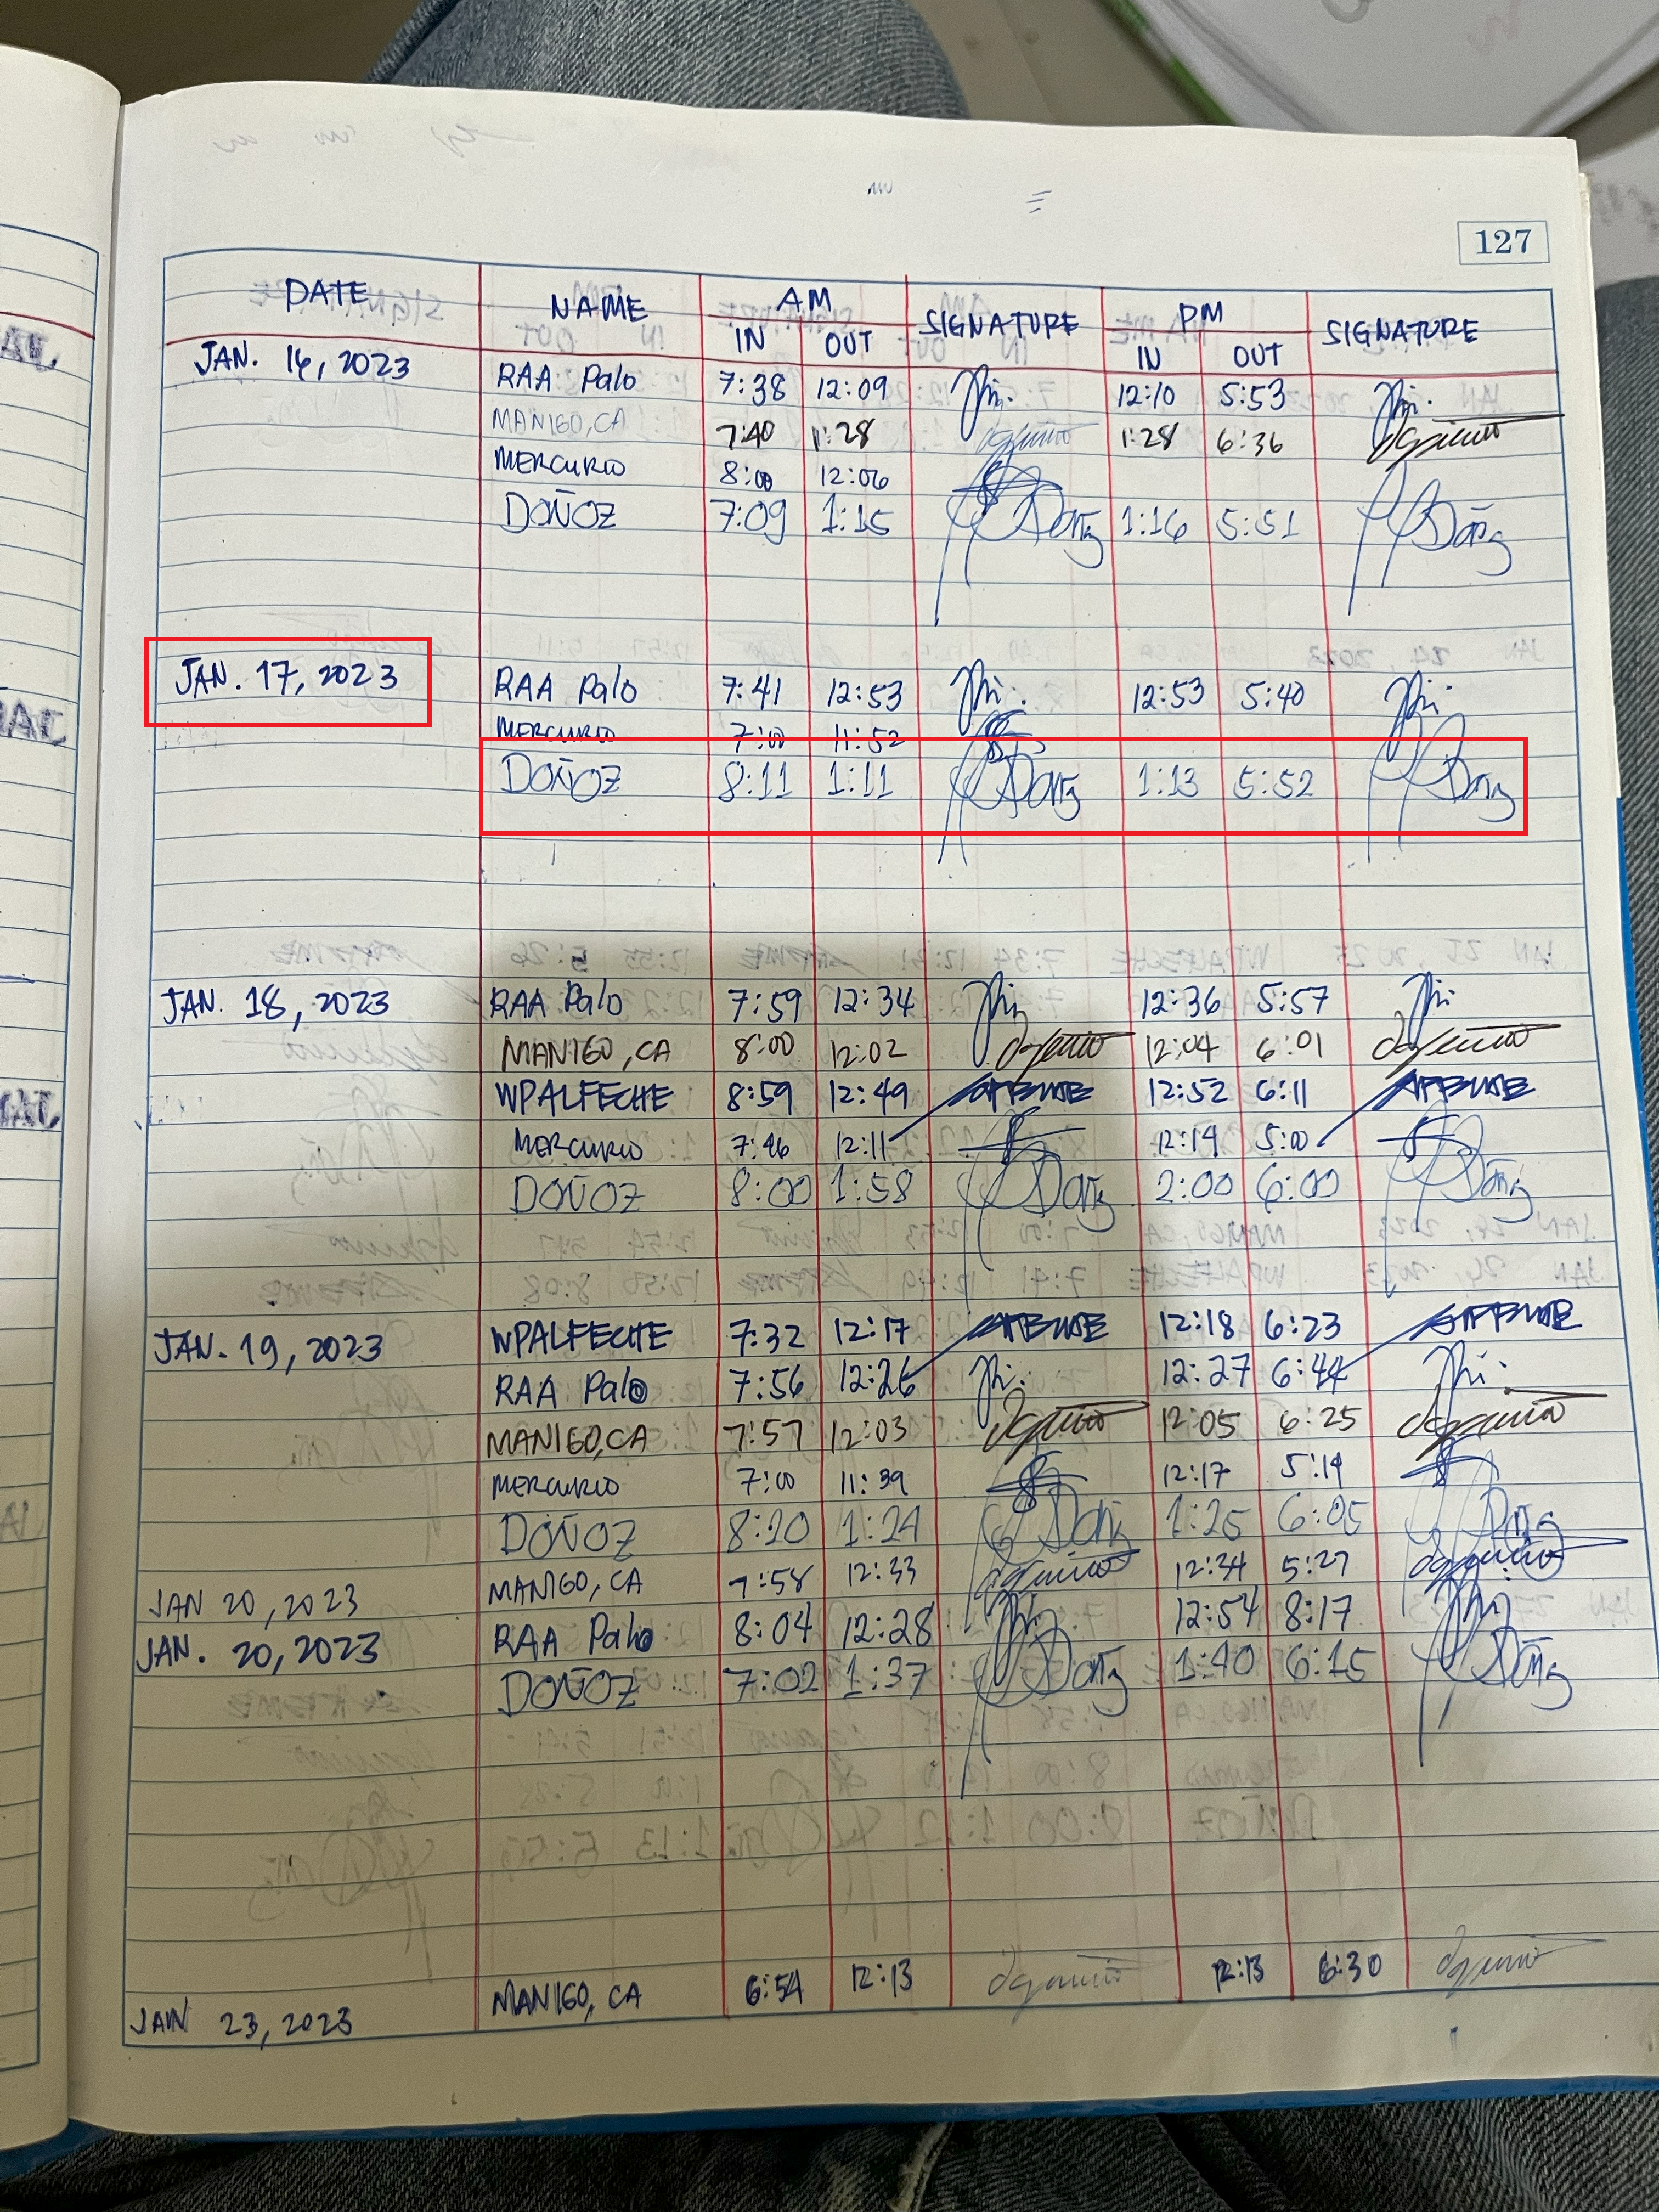 127
DATE NAME AM SIGNATURE PM SIGNATURE
IN OUT IN OUT
JAN. 16, 2023 RAA Palo 7:38 12:09 12:10 5:53
MANIGO, CA 7:40 1:28 1:28 6:36
MERCURIO 8:00 12:06
DOÑOZ 7:09 1:15 1:16 5:51
JAN. 17, 2023 RAA Palo 7:41 12:53 12:53 5:40
MERCURIO 7:00 11:52
DOÑOZ 8:11 1:11 1:13 5:52
JAN. 18, 2023 RAA Palo 7:59 12:34 12:36 5:57
MANIGO, CA 8:00 12:02 12:04 6:01
WPALFECHE 8:59 12:49 12:52 6:11
MERCURIO 7:46 12:11 12:14 5:00
DOÑOZ 8:00 1:58 2:00 6:00
JAN. 19, 2023 WPALFECHE 7:32 12:17 12:18 6:23
RAA Palo 7:56 12:26 12:27 6:44
MANIGO, CA 7:57 12:03 12:05 6:25
MERCURIO 7:00 11:39 12:17 5:14
DOÑOZ 8:20 1:24 1:25 6:05
JAN 20, 2023 MANIGO, CA 7:58 12:33 12:34 5:27
JAN. 20, 2023 RAA Palo 8:04 12:28 12:54 8:17
DOÑOZ 7:02 1:37 1:40 6:15
JAN 23, 2023 MANIGO, CA 6:54 12:13 12:13 6:30